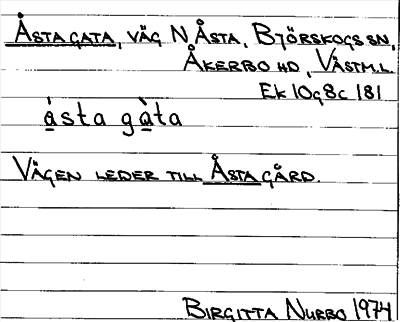 Åsta gata, väg N Åsta, Björskogs sn,
Åkerbo hd, Västm.l.
Ek 10g8c 181
á̱sta gà̱ta
Vägen leder till Åsta gård.
Birgitta Nurbo 1974